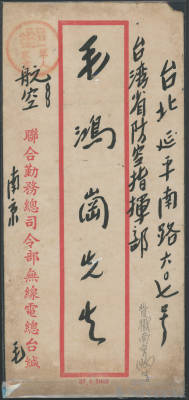 台北延平南路六〇七号
台湾省防空指揮部
毛鴻崗先生
航空
聯合勤務總司令部無線電總台緘
南京
毛